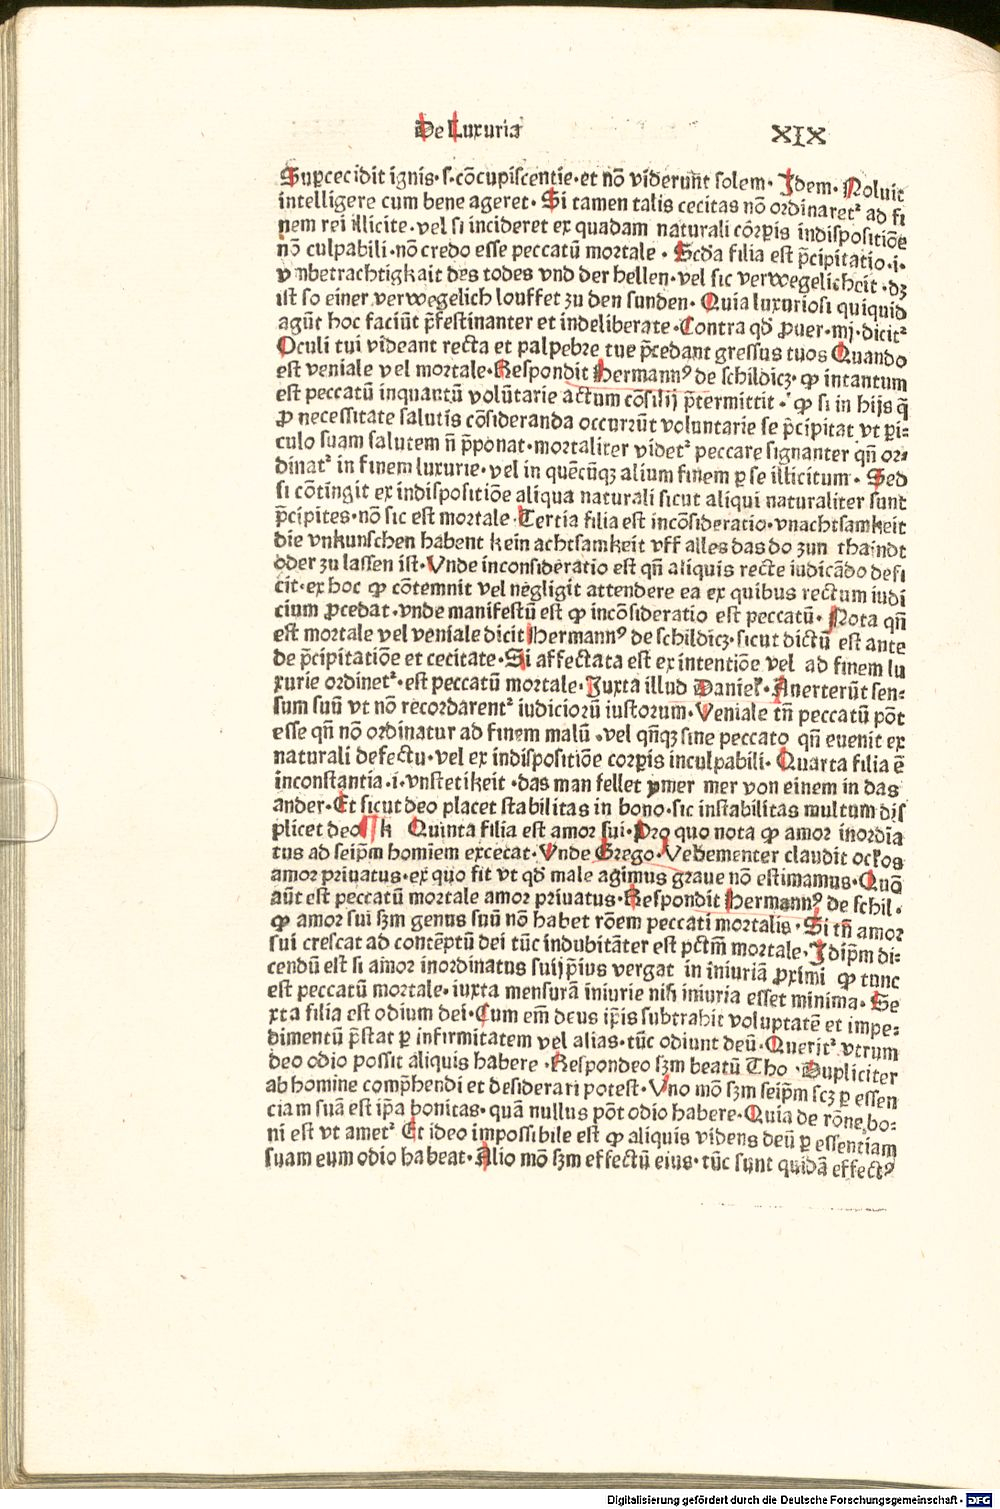 De Luxuria
XIX
Suꝑcecidit ignis·s·cōcupiscentie·et nō viderunt solem· Idem· Noluit
intelligere cum bene ageret· Si tamen talis cecitas nō ordinaretᷣ ad fi
nem rei illicite·vel si incideret ex quadam naturali corꝑis indispositiōe
nō culpabili·nō credo esse peccatū mortale· Scd̄a filia est p̄cipitatio·i·
vnbetrachtigkait des todes vnd der hellen·vel sic verwegelicheit·dz
ist so einer verwegelich louffet zu den sunden· Quia luxuriosi quiquid
agūt hoc faciūt p̄festinanter et indeliberate·Contra qd̄ ꝓuer·iiij·dicitᷣ
Oculi tui videant recta et palpebre tue p̄cedant gressus tuos Quando
est veniale vel mortale·Respondit Hermannꝰ de schildicz·ꝙ intantum
est peccatū inquantū volūtarie actum cōsilij p̄termittit·ꝙ si in hijs q̄
ꝓ necessitate salutis cōsideranda occurrūt voluntarie se p̄cipitat vt ꝑi⸗
culo suam salutem n̄ p̄ponat·mortaliter videtᷣ peccare signanter qn̄ or⸗
dinatᷣ in finem luxurie·vel in quēcūqꝫ alium finem ꝑ se illicitum· Sed
si cōtingit ex indispositiōe aliqua naturali sicut aliqui naturaliter sunt
p̄cipites·nō sic est mortale·Tertia filia est incōsideratio·vnachtsamkeit
die vnkunschen habent kein achtsamkeit vff alles das do zun thaindt
oder zu lassen ist·Vnde inconsideratio est qn̄ aliquis recte iudicādo defi
cit·ex hoc ꝙ cōtemnit vel negligit attendere ea ex quibus rectum iudi
cium ꝓcedat·vnde manifestū est ꝙ incōsideratio est peccatū· Nota qn̄
est mortale vel veniale dicit Hermannꝰ de schildicz·sicut dictū est ante
de p̄cipitatiōe et cecitate·Si affectata est ex intentiōe vel ad finem lu
xurie ordinetᷣ·est peccatū mortale·Iuxta illud Daniel·Auerterūt sen⸗
sum suū vt nō recordarentᷣ iudiciorū iustorum·Veniale tn̄ peccatū pōt
esse qn̄ nō ordinatur ad finem malū·vel qn̄qꝫ sine peccato qn̄ euenit ex
naturali defectu·vel ex indispositiōe corꝑis inculpabili· Quarta filia ē
inconstantia·i·vnstetikeit·das man fellet ymer mer von einem in das
ander·Et sicut deo placet stabilitas in bono·sic instabilitas multum dis
plicet deo ¶ k Quinta filia est amor sui·Pro quo nota ꝙ amor inordīa
tus ad seip̄m homīem excecat·Vnde Grego·Vehementer claudit oc̄los
amor priuatus·ex quo fit vt qd̄ male agimus graue nō estimamus·Quā
aūt est peccatū mortale amor priuatus·Respondit Hermannꝰ de schil·
ꝙ amor sui scd̄m genus suū nō habet rōem peccati mortalis·Si tn̄ amor
sui crescat ad contēptū dei tūc indubitāter est pctm̄ mortale·Idip̄m di⸗
cendū est si amor inordinatus suijp̄ius vergat in iniuriā ꝓximi ꝙ tunc
est peccatū mortale·iuxta mensurā iniurie nisi iniuria esset minima·Se
xta filia est odium dei·Cum em̄ deus ip̄is subtrahit voluptatē et impe⸗
dimentū p̄stat ꝑ infirmitatem vel alias·tūc odiunt deū·Queritᷣ vtrum
deo odio possit aliquis habere·Respondeo scd̄m beatū Tho·Dupliciter
ab homine comp̄hendi et desiderari potest·Vno mō scd̄m seip̄m scꝫ ꝑ essen
ciam suā est ip̄a bonitas·quā nullus pōt odio habere·Quia de rōne bo⸗
ni est vt ametᷣ Et ideo impossibile est ꝙ aliquis videns deū ꝑ essentiam
suam eum odio habeat·Alio mō scd̄m effectū eius·tūc sunt quidā effectꝰ
Digitalisierung gefördert durch die Deutsche Forschungsgemeinschaft - DFG